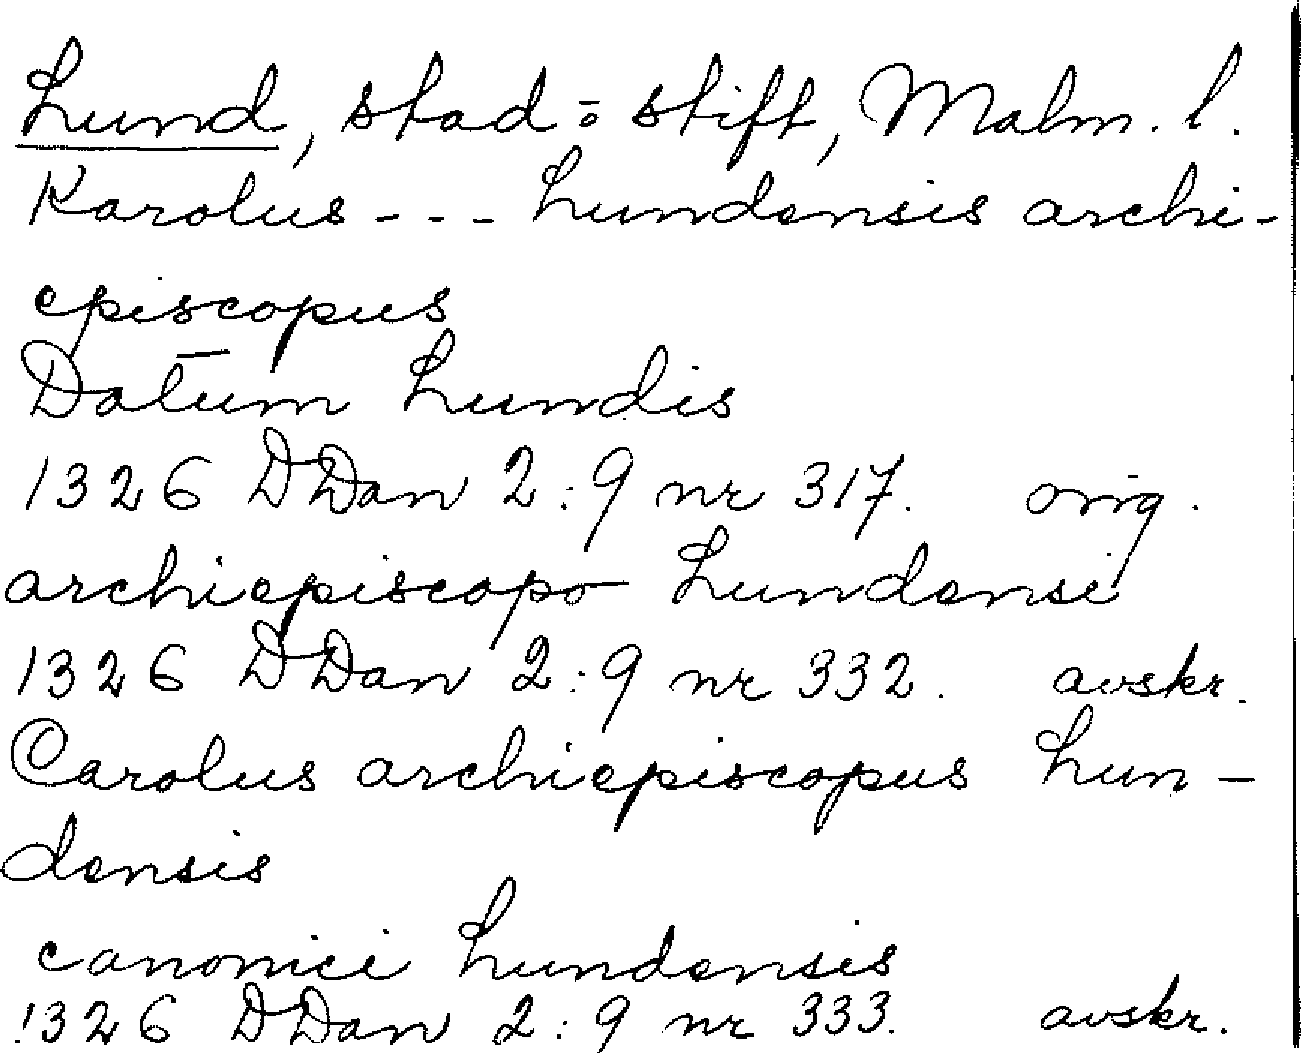 Lund, stad o stift, Malm. l.
Karolus --- Lundensis archi-
episcopus
Datum Lundis
1326 DDan 2:9 nr 317. orig.
archiepiscopo Lundensi
1326 DDan 2:9 nr 332. avskr.
Carolus archiepiscopus Lun-
densis
canonici Lundensis
1326 DDan 2:9 nr 333. avskr.